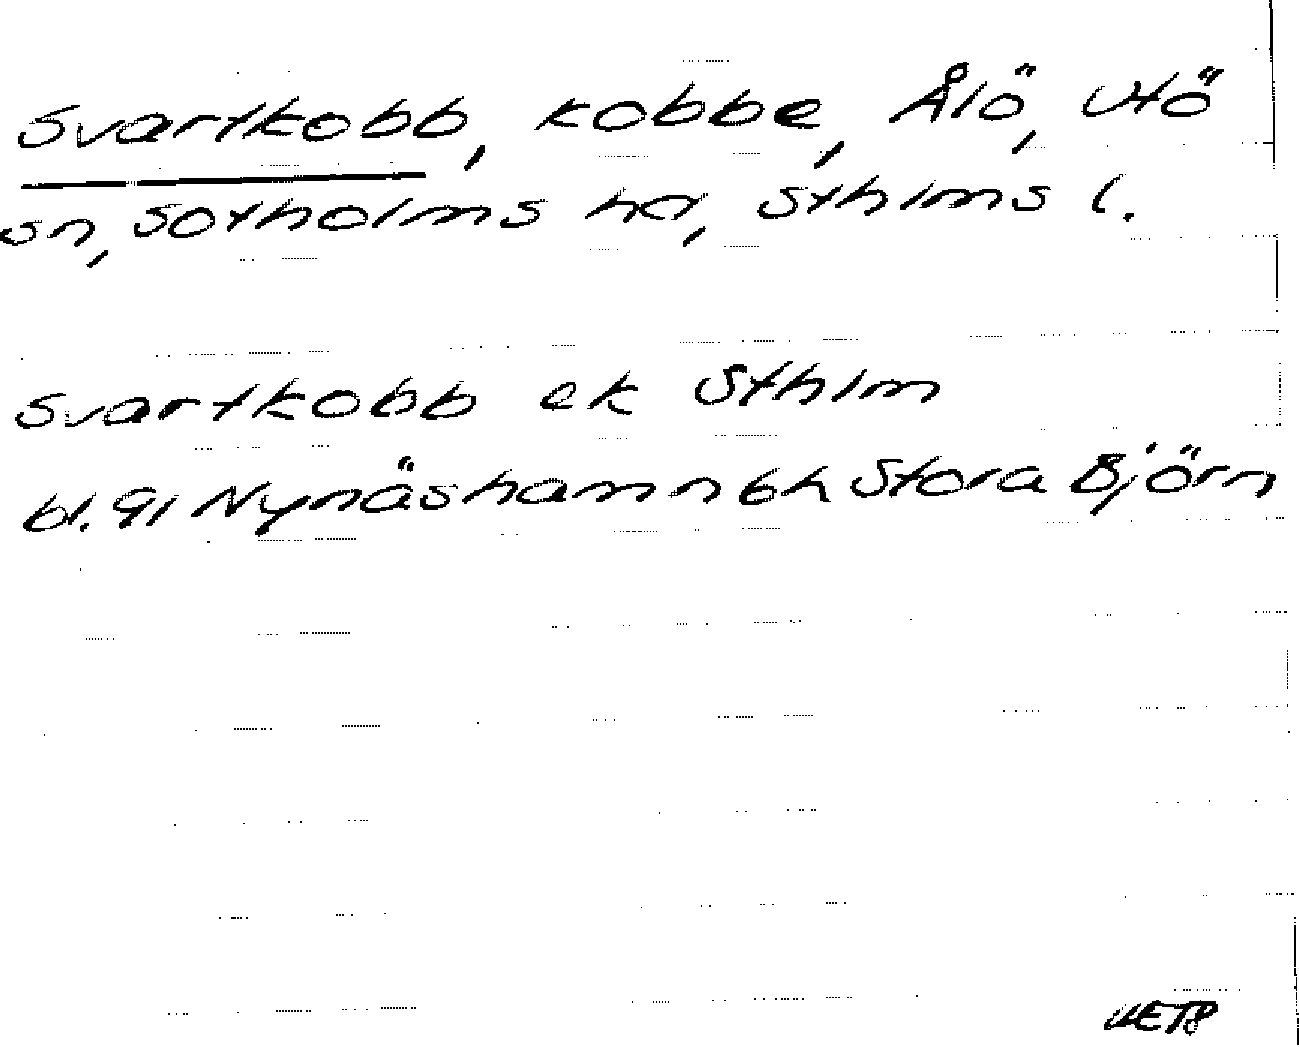 Svartkobb, kobbe, Ålö, Utö
sn, Sotholms hd, Sthlms l.
Svartkobb ek Sthlm
bl. 91 Nynäshamn 6h Stora Björn